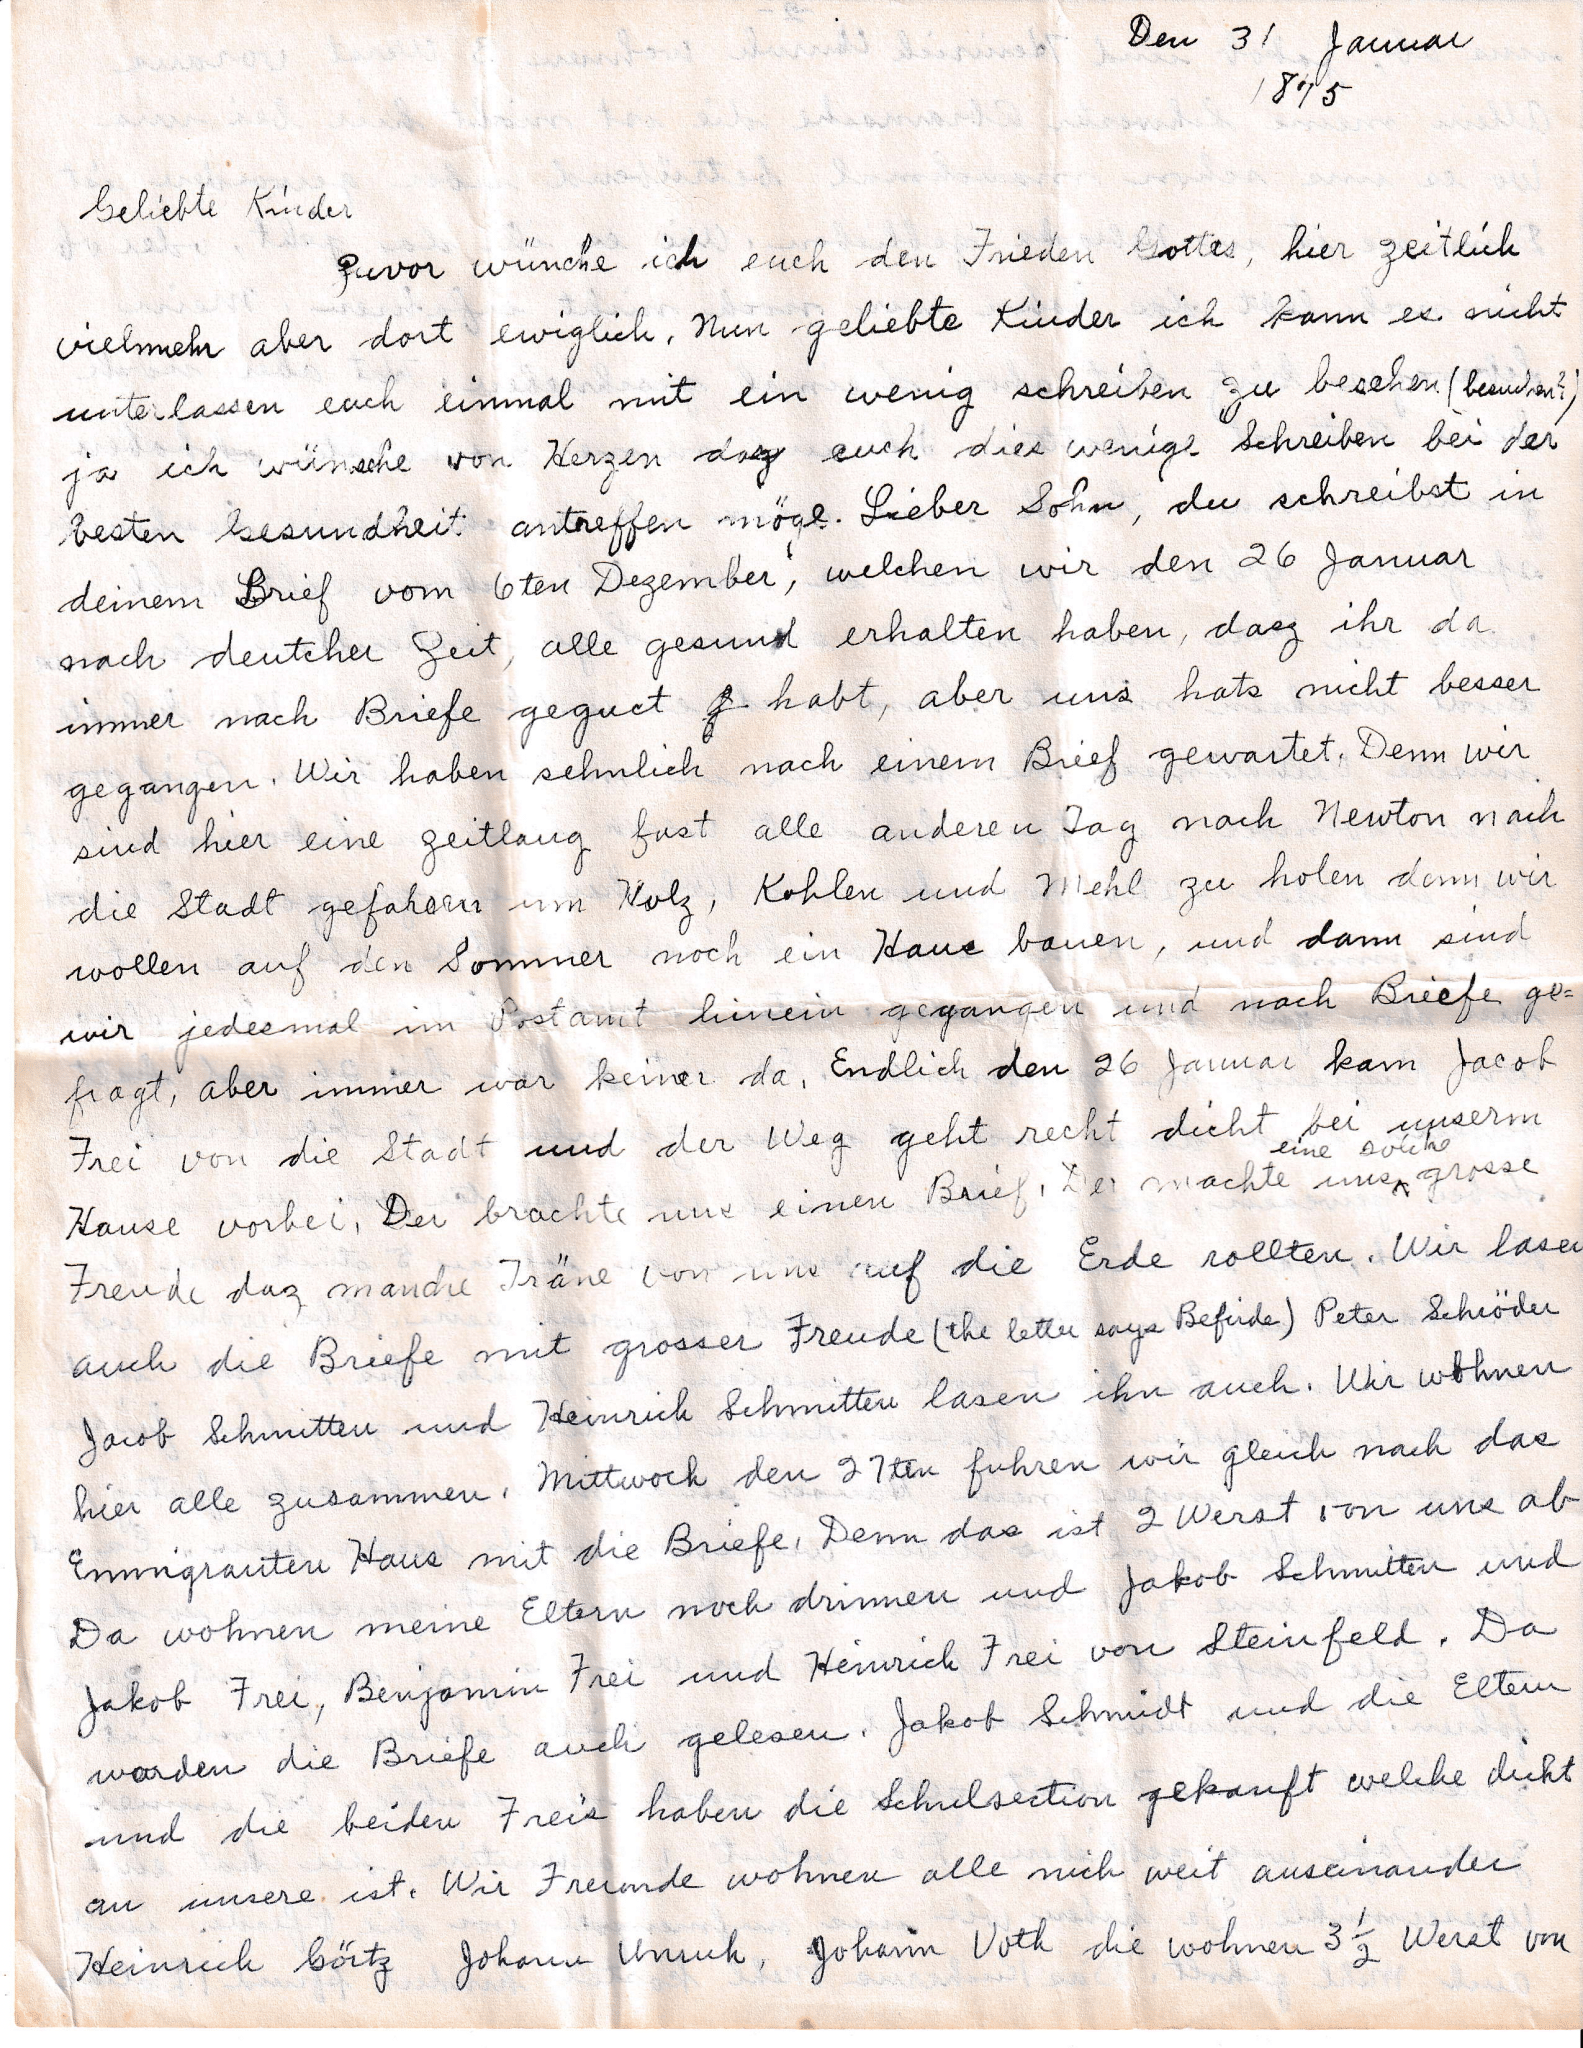 Den 31 Januar
1875
Geliebte Kinder
Zuvor wünche ich euch den Frieden Gottes, hier zeitlich
vielmehr aber dort ewiglich. Nun geliebte Kinder ich kann es nicht
unterlassen euch einmal mit ein wenig schreiben zu besehen (besuchen?)
ja ich wünsche von Herzen dasz euch dies wenige Schreiben bei der
besten Gesundheit antreffen möge. Lieber Sohn, du schreibst in
deinem Brief vom 6ten Dezember, welchen wir den 26 Januar
nach deutcher Zeit, alle gesund erhalten haben, dasz ihr da
immer nach Briefe geguct habt, aber uns hats nicht besser
gegangen. Wir haben sehnlich nach einem Brief gewartet. Denn wir
sind hier eine zeitlang fast alle anderen Tag nach Newton nach
die Stadt gefahren um Holz, Kohlen und Mehl zu holen denn wir
wollen auf den Sommer noch ein Haus bauen, und dann sind
wir jedesmal im Postamt hinein gegangen und nach Briefe ge=
fragt, aber immer war keiner da. Endlich den 26 Januar kam Jacob
Frei von die Stadt und der Weg geht recht dicht bei unserm
Hause vorbei. Der brachte uns einen Brief. Der machte uns eine solche grosse
Freude dasz manche Träne von uns auf die Erde rollten. Wir lasen
auch die Briefe mit grosser Freude (the letter says Befirde) Peter Schröder
Jacob Schmitten und Heinrich Schmitten lasen ihn auch. Wir wohnen
hier alle zusammen. Mittwoch den 27ten fuhren wir gleich nach das
Emmigranten Haus mit die Briefe. Denn das ist 2 Werst von uns ab
Da wohnen meine Eltern noch drinnen und Jakob Schmitten und
Jakob Frei, Benjamin Frei und Heinrich Frei von Steinfeld. Da
worden die Briefe auch gelesen. Jakob Schmidt und die Eltern
und die beiden Freis haben die Schulsection gekauft welche dicht
an unsere ist. Wir Freunde wohnen alle nich weit auseinander
Heinrich Görtz Johann Unruh, Johann Voth die wohnen 3 1/2 Werst von